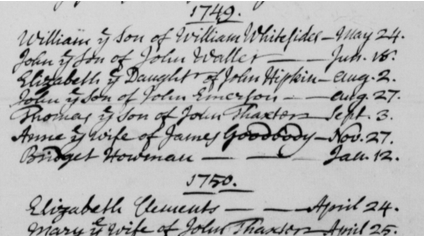 1749.
William ye Son of William Whitefides - May 24.
John ye Son of John Waller - Jun. 18.
Elizabeth ye Daught of John Hipkin - Aug. 2.
John ye Son of John Emerson - Aug. 27.
Thomas ye Son of John Thaxter - Sept. 3.
Anne ye Wife of James Goodbody - Nov. 27.
Bridget Howman - Jan. 12.
1750.
Elizabeth Clements - April 24.
Mary ye Wife of John Thaxter April 25.